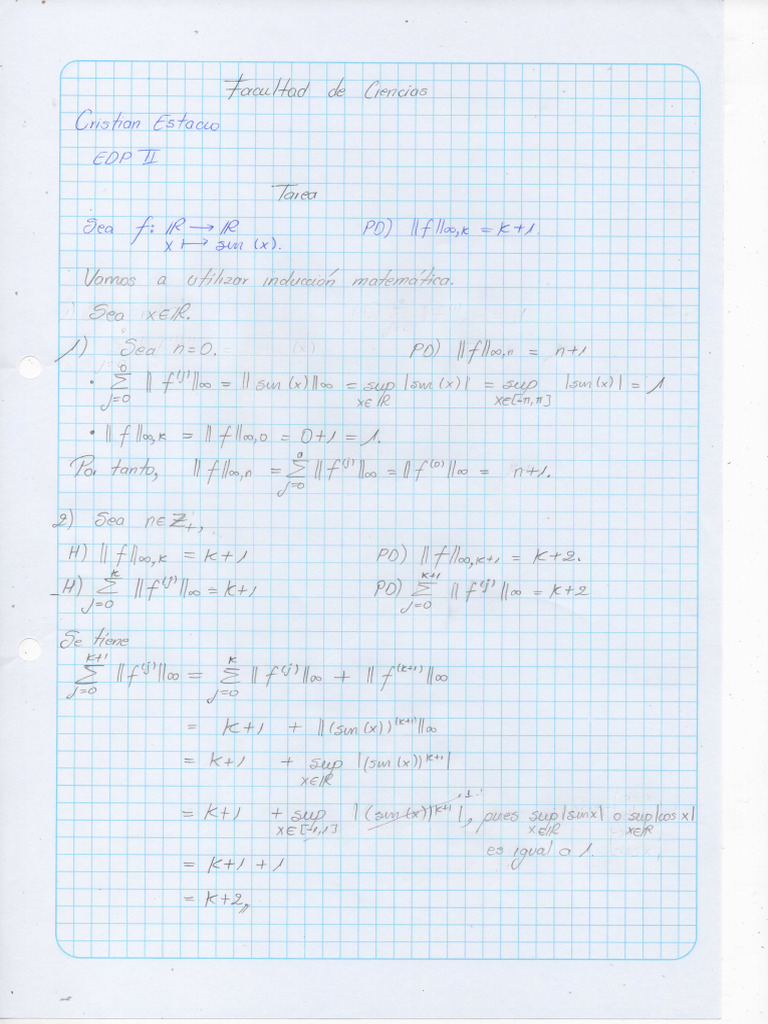 Facultad de Ciencias
Cristian Estacio
EDP II
Tarea
Sea f: ℝ → ℝ PD) ||f||∞,k = k+1.
x ↦ sin (x).
Vamos a utilizar inducción matemática.
Sea x∈ℝ.
1) Sea n=0. PD) ||f||∞,n = n+1
• ∑_{j=0}^{0} ||f^(j)||∞ = ||sin (x)||∞ = sup_{x∈ℝ} |sin (x)| = sup_{x∈[-π,π]} |sin (x)| = 1
• ||f||∞,k = ||f||∞,0 = 0+1 = 1.
Por tanto, ||f||∞,n = ∑_{j=0}^{0} ||f^(j)||∞ = ||f^(0)||∞ = n+1.
2) Sea n∈ℤ+,
H) ||f||∞,k = k+1 PD) ||f||∞,k+1 = k+2.
H) ∑_{j=0}^{k} ||f^(j)||∞ = k+1 PD) ∑_{j=0}^{k+1} ||f^(j)||∞ = k+2
Se tiene
∑_{j=0}^{k+1} ||f^(j)||∞ = ∑_{j=0}^{k} ||f^(j)||∞ + ||f^(k+1)||∞
= k+1 + ||(sin(x))^(k+1)||∞
= k+1 + sup_{x∈ℝ} |(sin(x))^{k+1}|
= k+1 + sup_{x∈[-1,1]} |(sin(x))^{k+1}|, pues sup_{x∈ℝ}|sinx| o sup_{x∈ℝ}|cosx|
es igual a 1.
= k+1 +1
= k+2,,